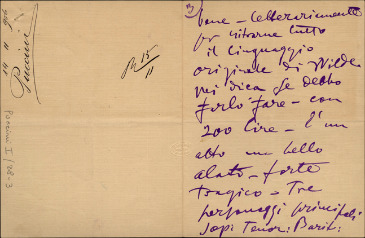 Puccini
Puccini I / 28-3
15
11
3
bene - letterariamente
per ritrarne tutto
il linguaggio
originale di Wilde
mi dica se debbo
farlo fare - con
200 lire - È un
atto un bello
alato - forte
tragico - Tre
personaggi principali
Sop: Tenor: Barit: